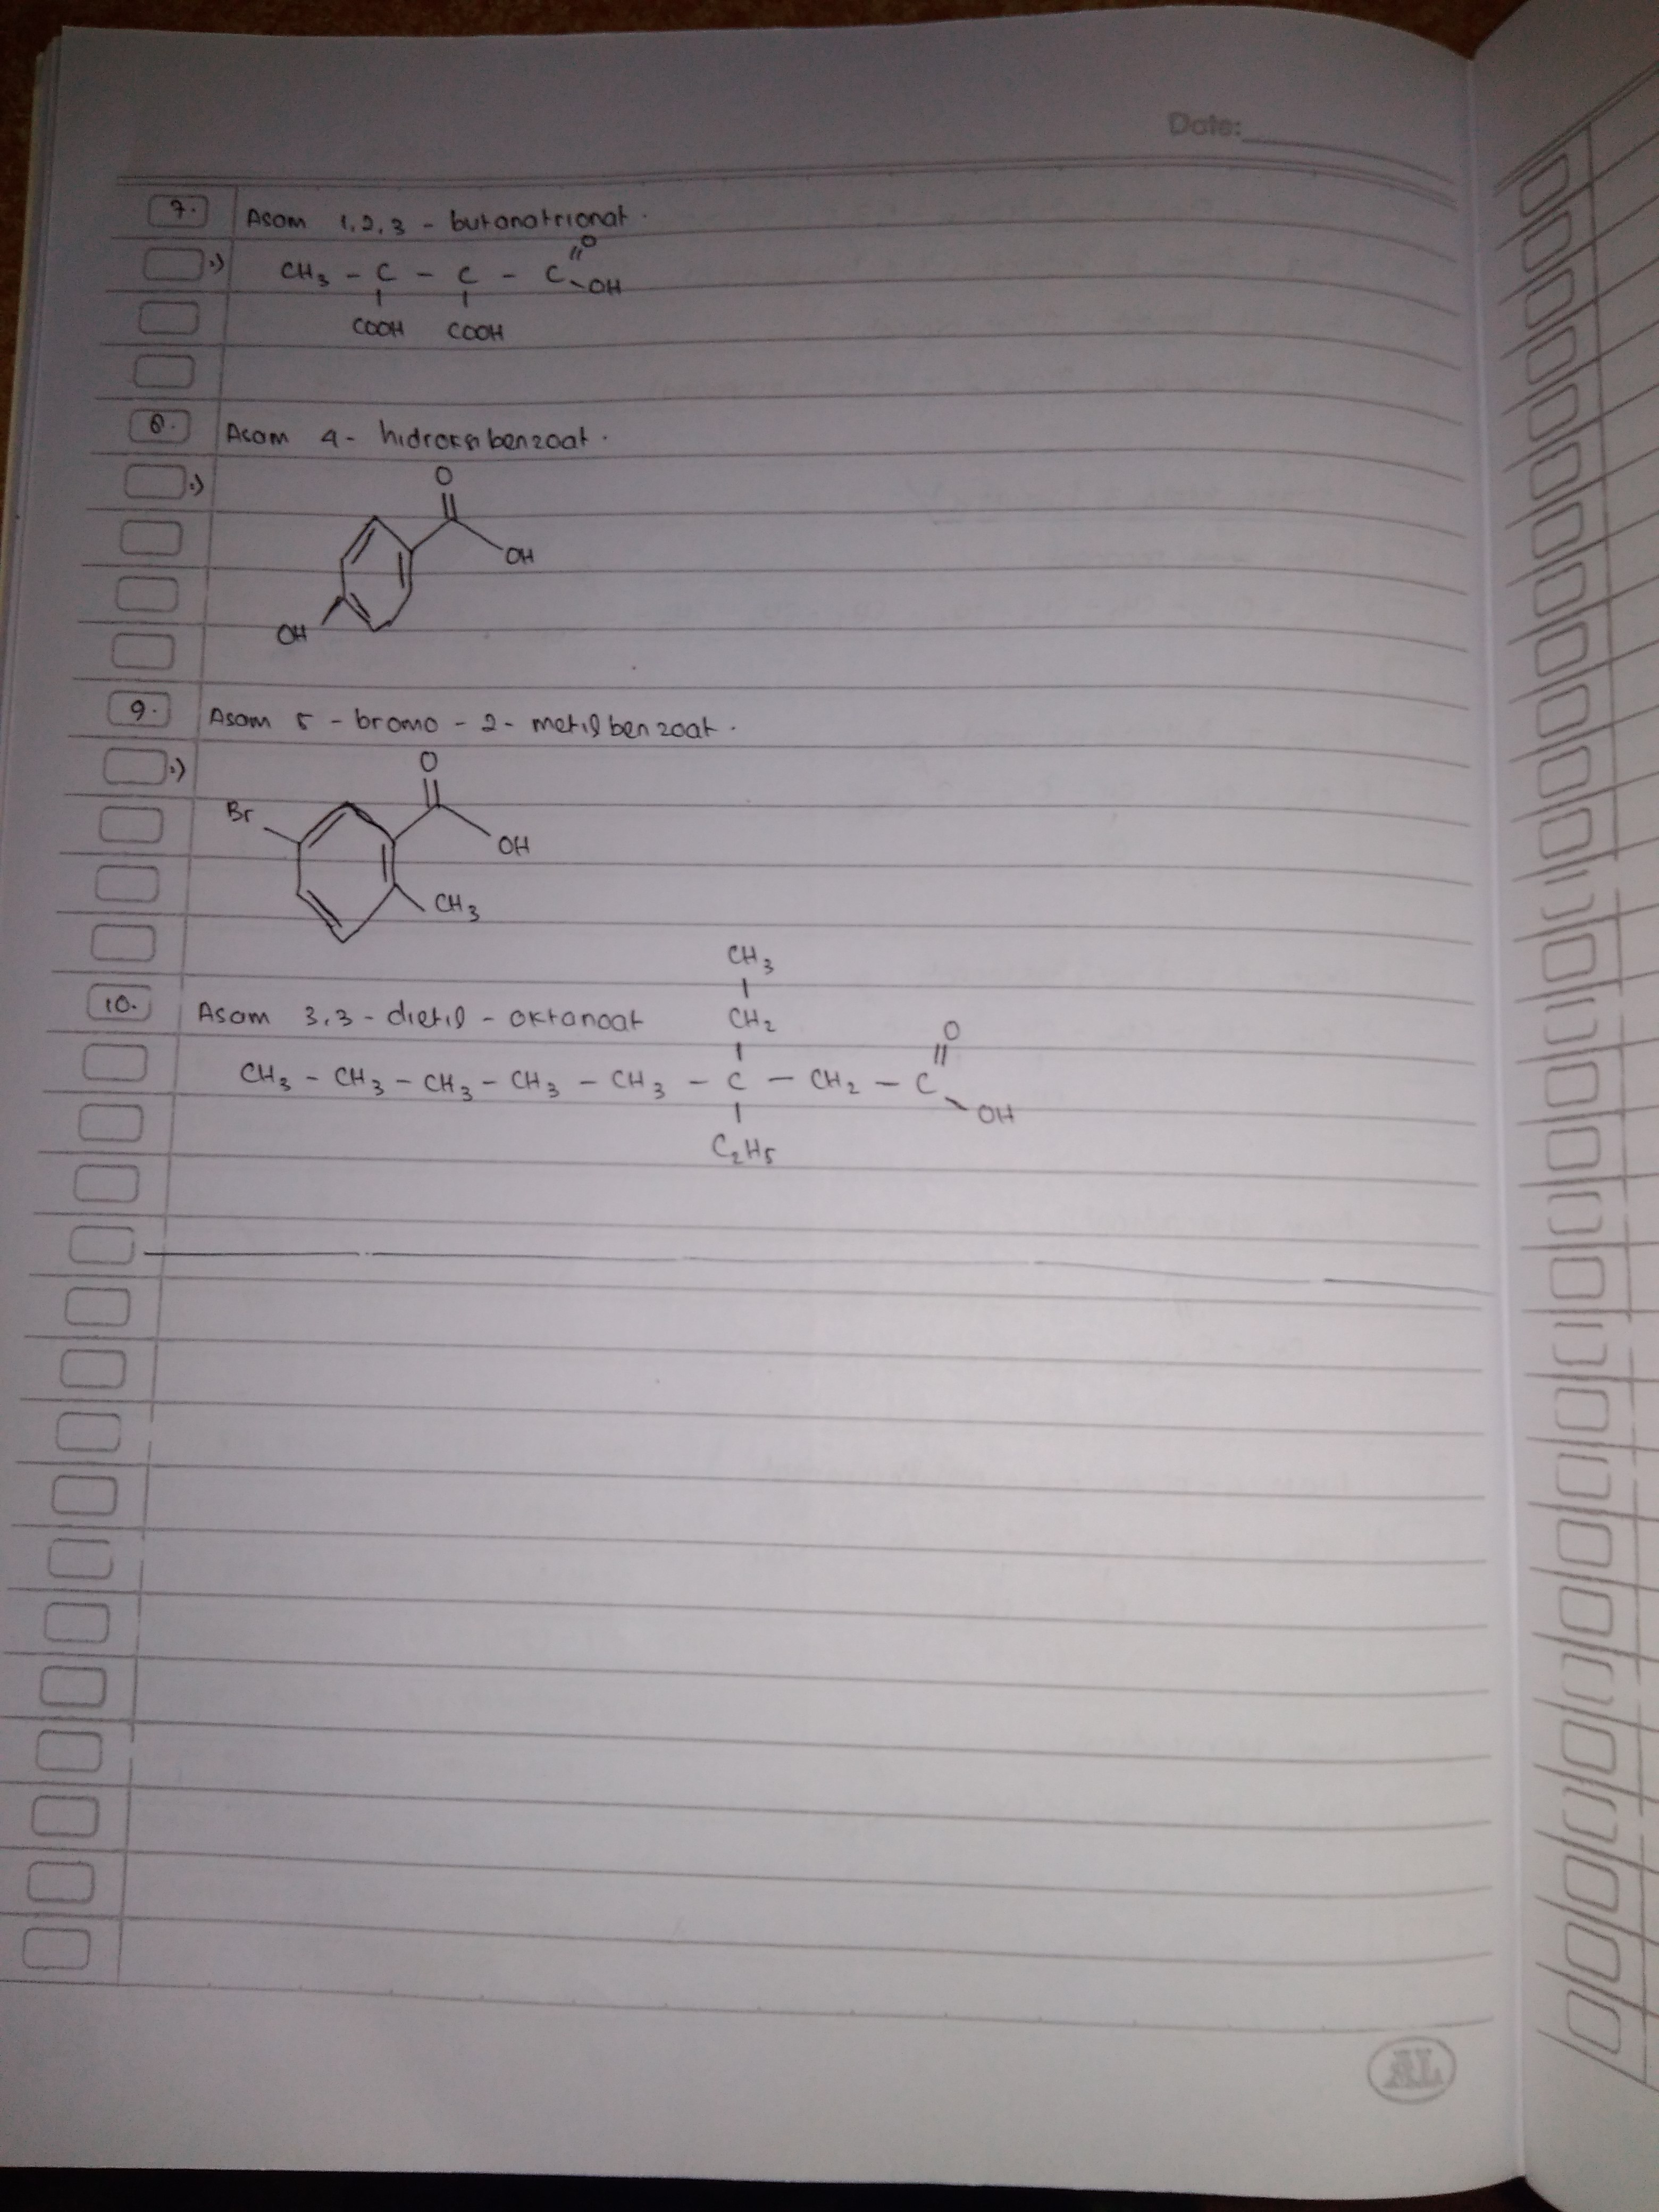 Date:
7. Asam 1,2,3 - butanatrionat.
O
CH3 - C - C - C - OH
COOH COOH
8. Asam 4- hidroksibenzoat.
O
OH
OH
9. Asam 5 - bromo - 2 - metilbenzoat.
O
Br
OH
CH3
CH3
10. Asam 3,3 - dietil - oktanoat CH2
O
CH3 - CH3 - CH3 - CH3 - CH3 - C - CH2 - C
OH
C2H5
AL